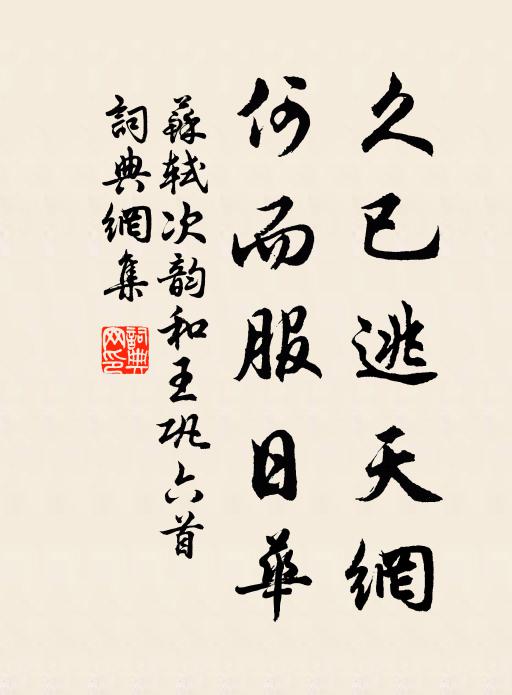 久已逃天網
何而服日華
蘇軾次韵和王巩六首
詞典網集
詞典网印